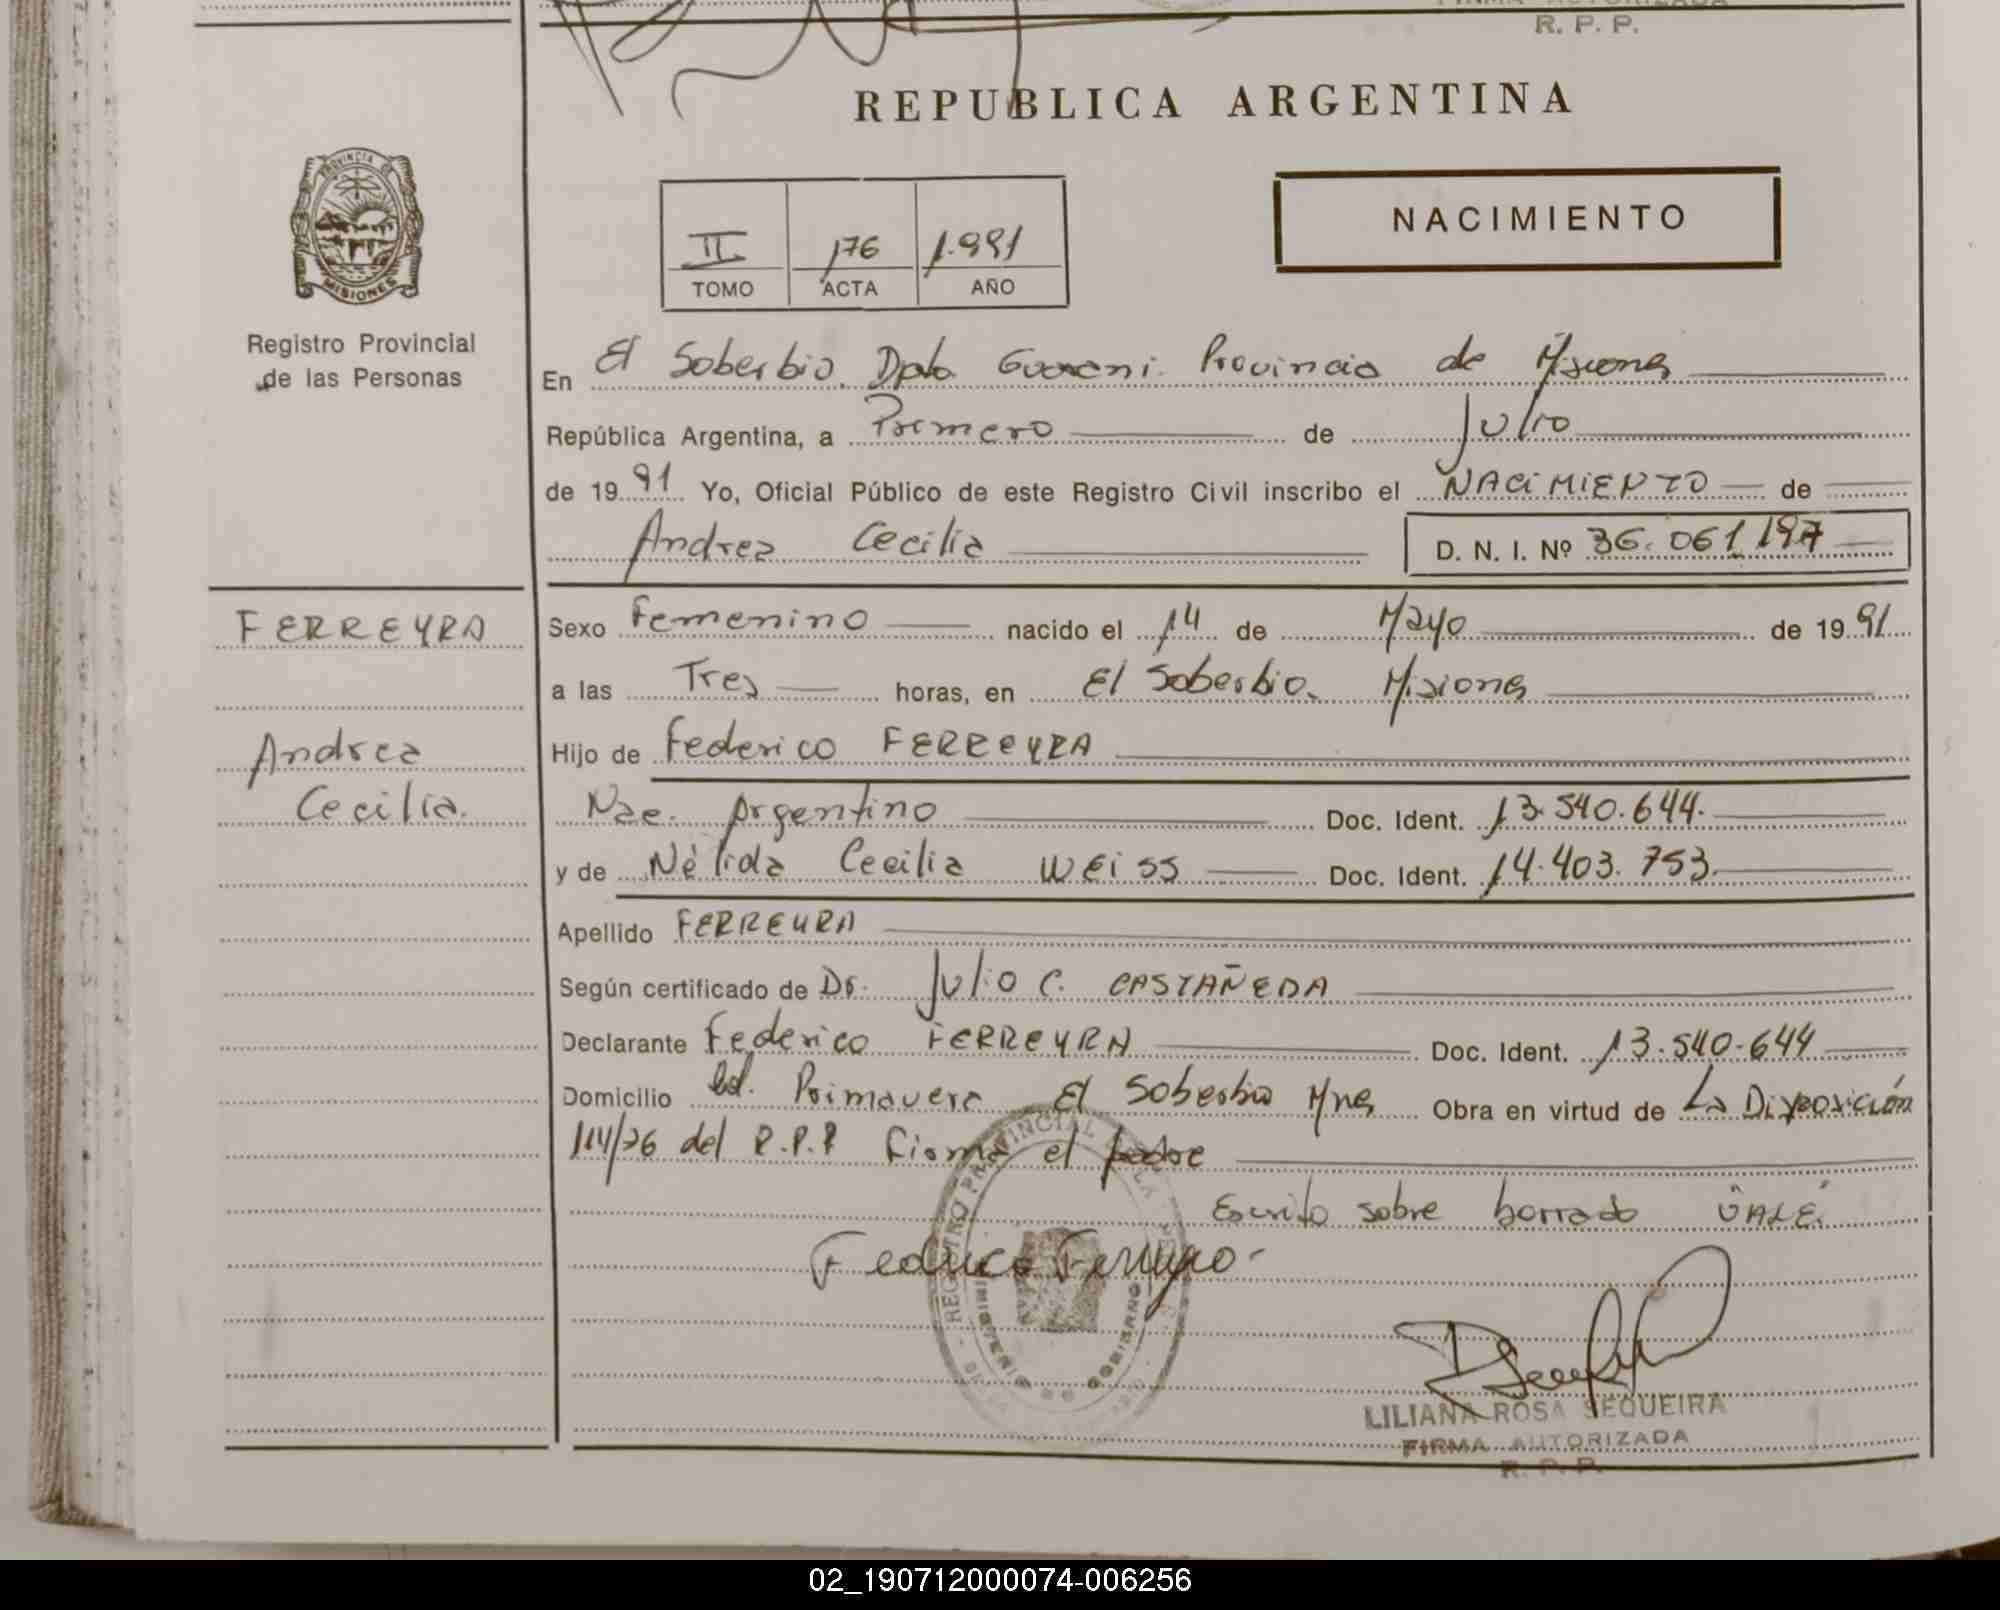 R. P. P.
REPUBLICA ARGENTINA
PROVINCIA DE
MISIONES
Registro Provincial
de las Personas
II 176 1.991
TOMO ACTA AÑO
NACIMIENTO
En El Soberbio. Dpto. Guarani. Provincia de Misiones
República Argentina, a Primero de Julio
de 1991 Yo, Oficial Público de este Registro Civil inscribo el NACIMIENTO de
Andrea Cecilia D. N. I. Nº 36.061.197
FERREYRA
Andrea
Cecilia.
Sexo Femenino nacido el 14 de Mayo de 1991
a las Tres horas, en El Soberbio. Misiones
Hijo de Federico FERREYRA
Nac. Argentino Doc. Ident. 13.540.644.
y de Nélida Cecilia WEiSS Doc. Ident. 14.403.753.
Apellido FERREYRA
Según certificado de Dr. Julio C. CASTAÑEDA
Declarante Federico FERREYRA Doc. Ident. 13.540.644
Domicilio Col. Primavera El Soberbio Mnes Obra en virtud de La Disposición
114/76 del R.P.P Firma el padre
Escrito sobre borrado "VALE"
Federico Ferreyra
REGISTRO PROVINCIAL DE LAS
LILIANA ROSA SEQUEIRA
FIRMA AUTORIZADA
R. P. P.
02_190712000074-006256